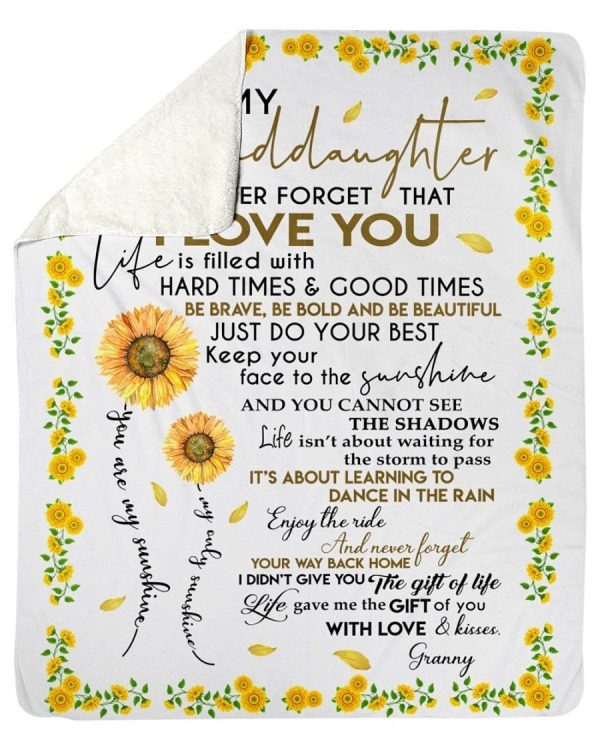 MY
ddaughter
ER FORGET THAT
I LOVE YOU
Life is filled with
HARD TIMES & GOOD TIMES
BE BRAVE, BE BOLD AND BE BEAUTIFUL
JUST DO YOUR BEST
Keep your
face to the sunshine
AND YOU CANNOT SEE
THE SHADOWS
Life isn't about waiting for
the storm to pass
IT'S ABOUT LEARNING TO
DANCE IN THE RAIN
Enjoy the ride
And never forget
YOUR WAY BACK HOME
I DIDN'T GIVE YOU The gift of life
Life gave me the GIFT of you
WITH LOVE & kisses.
Granny
you are my sunshine
my only sunshine